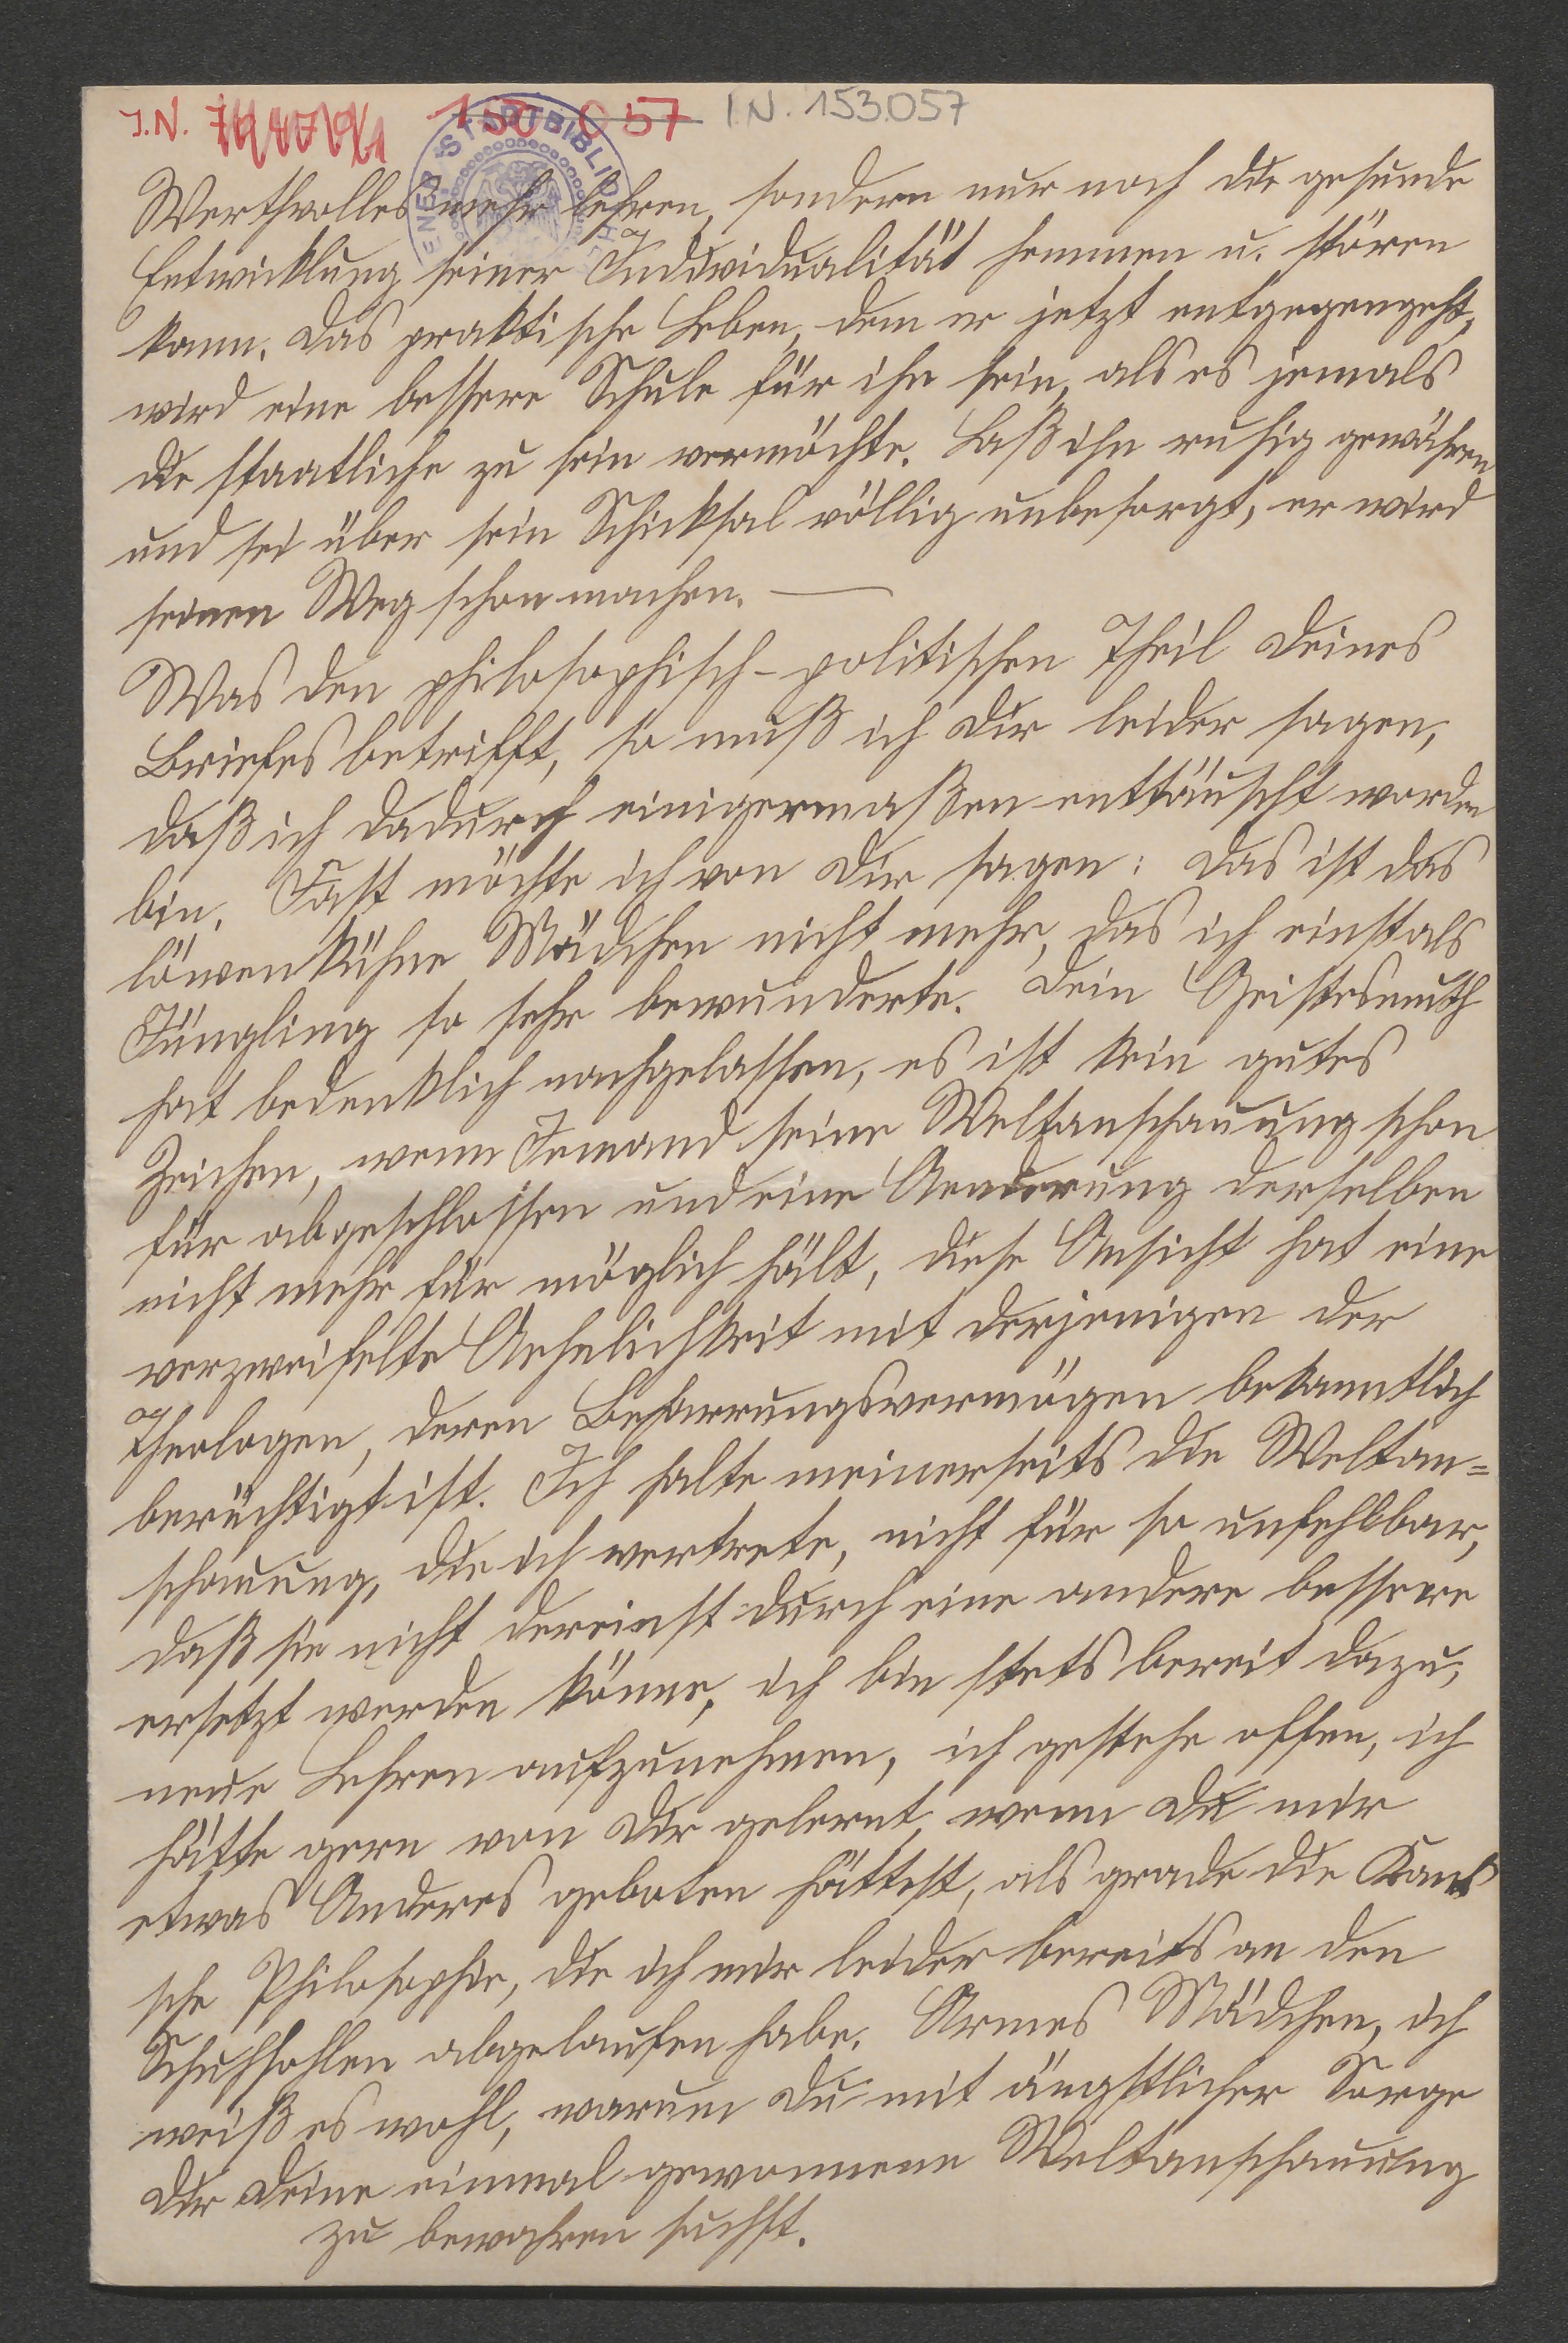 I.N. 153.057
Werthvolles mehr lehren, sondern nur noch die gesunde
Entwicklung seiner Individualität hemmen u. stören
kann. Das praktische Leben, dem er jetzt entgegengeht,
wird eine bessere Schule für ihn sein, als es jemals
die staatliche zu sein vermöchte. Laß ihn ruhig gewähren
und sei über sein Schicksal völlig unbesorgt, er wird
seinen Weg schon machen. —
Was den philosophisch-politischen Theil Deines
Briefes betrifft, so muß ich Dir leider sagen,
daß ich dadurch einigermaßen enttäuscht worden
bin. Fast möchte ich von Dir sagen: das ist das
löwenkühne Mädchen nicht mehr, das ich einst als
Jüngling so sehr bewunderte. Dein Geistesmuth
hat bedenklich nachgelassen, es ist kein gutes
Zeichen, wenn Jemand seine Weltanschauung schon
für abgeschlossen und eine Aenderung derselben
nicht mehr für möglich hält, diese Ansicht hat eine
verzweifelte Aehnlichkeit mit derjenigen der
Theologen, deren Beharrungsvermögen bekanntlich
berüchtigt ist. Ich halte meinerseits die Weltan=
schauung, die ich vertrete, nicht für so unfehlbar,
daß sie nicht dereinst durch eine andere bessere
ersetzt werden könne, ich bin stets bereit dazu,
neue Lehren aufzunehmen, ich gestehe offen, ich
hätte gern von Dir gelernt, wenn Du mir
etwas Anderes geboten hättest, als grade die Kant
sche Philosophie, die ich mir leider bereits an den
Schuhsohlen abgelaufen habe. Armes Mädchen, ich
weiß es wohl, warum Du mit ängstlicher Sorge
Dir Deine einmal gewonnene Weltanschauung
zu bewahren suchst.